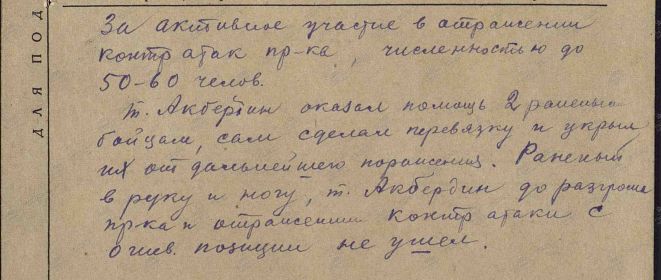 За активное участие в отражении
контр атак пр-ка, численностью до
50-60 челов.
т. Акбердин оказал помощь 2 раненым
бойцам, сам сделал перевязку и укрыл
их от дальнейшего поражения. Раненый
в руку и ногу, т. Акбердин до разгрома
пр-ка и отражении контр атаки с
огнев. позиции не ушел.
ДЛЯ ПОД